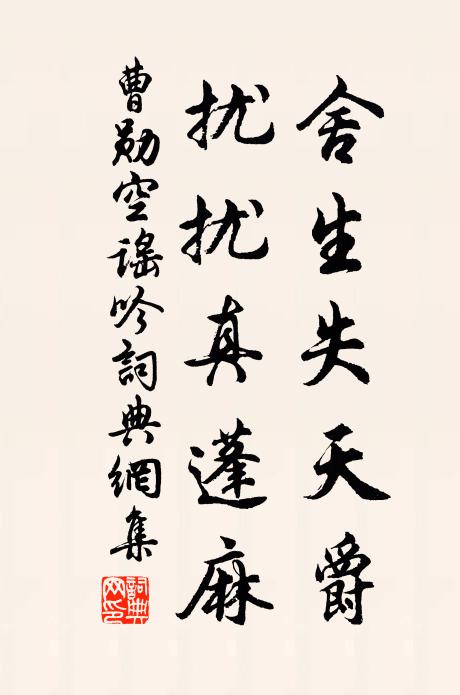 舍生失天爵
扰扰真蓬麻
曹勋空谣吟詞典網集
詞典网印